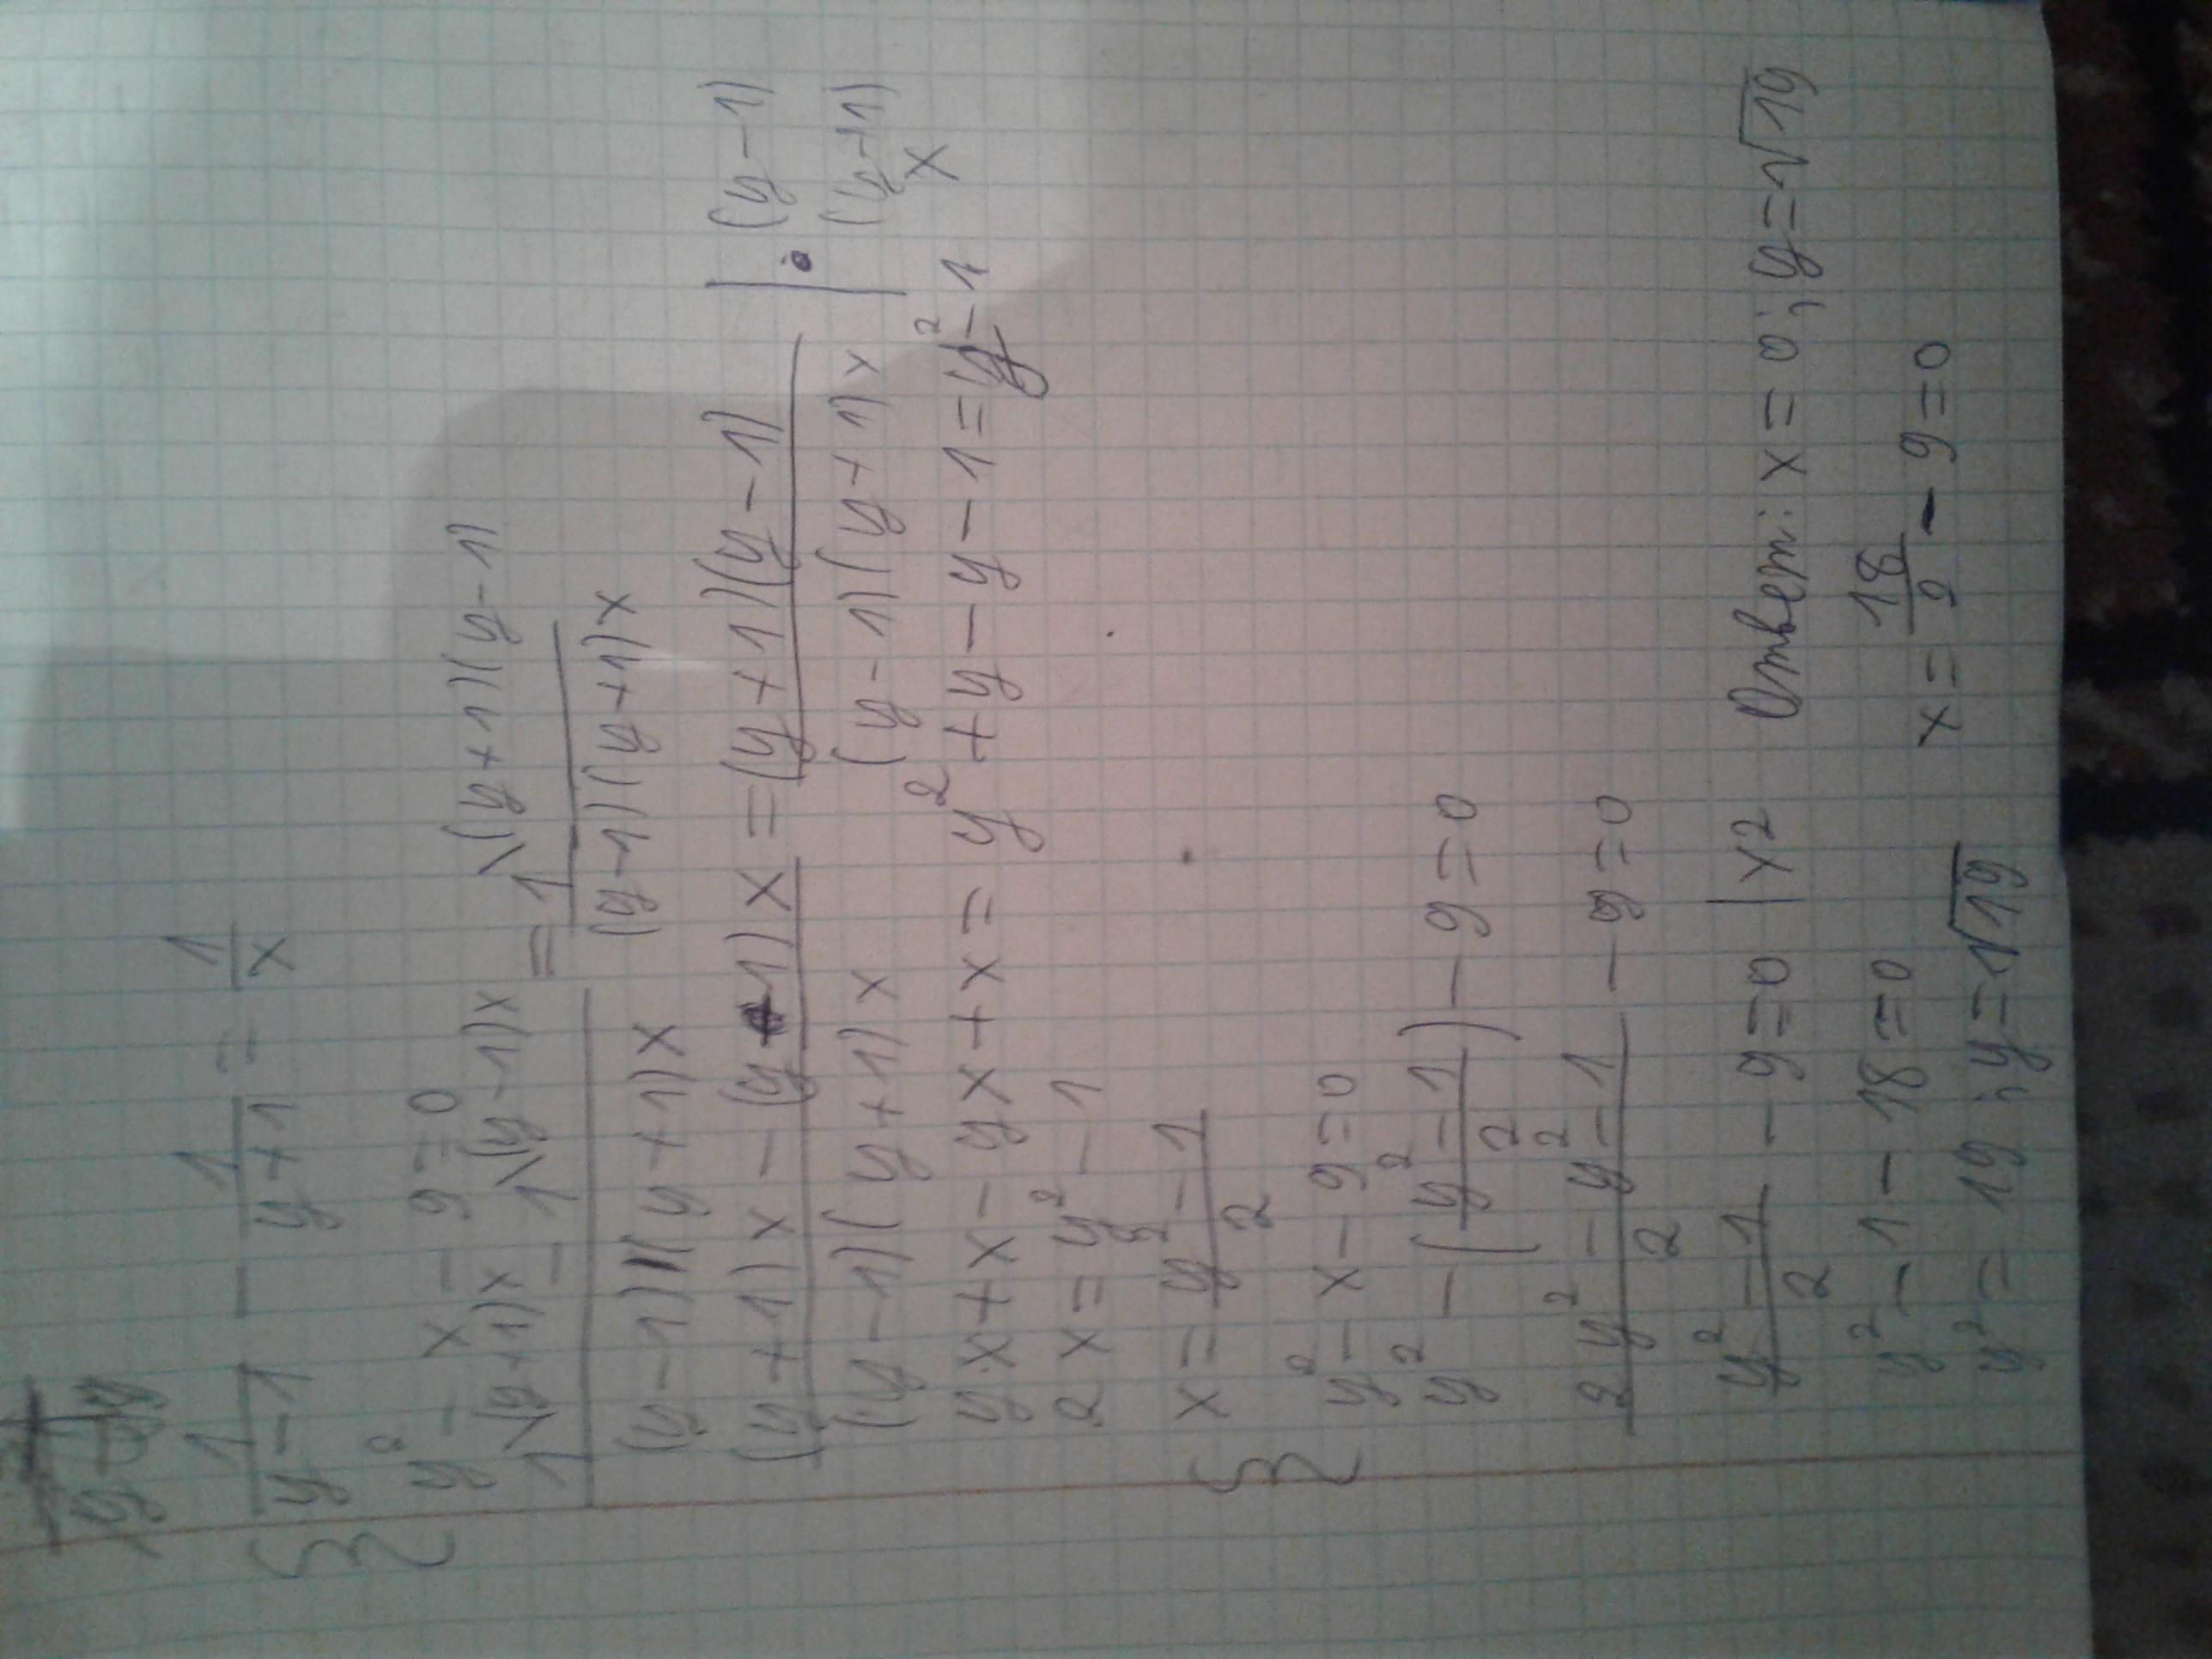 { 1/(y-1) - 1/(y+1) = 1/x
y² - x - 9 = 0
(1\(y+1)x - 1\(y-1)x)/((y-1)(y+1)x) = (1\(y+1)(y-1)/((y-1)(y+1)x)
((y+1)x - (y-1)x)/((y-1)(y+1)x) = ((y+1)(y-1))/((y-1)(y+1)x) | · (y-1)(y+1)x
yx + x - yx + x = y² + y - y - 1 = y² - 1
2x = y² - 1
{ x = (y² - 1)/2
y² - x - 9 = 0
y² - ((y² - 1)/2) - 9 = 0
(2y² - y² - 1)/2 - 9 = 0
(y² - 1)/2 - 9 = 0 | ×2
y² - 1 - 18 = 0
y² = 19 ; y = √19
Ответ: x = 0 ; y = √19
x = 18/2 - 9 = 0